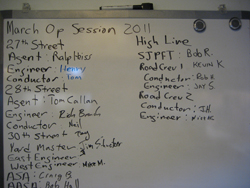 March Op Session 2011
27th Street
Agent: Ralph Heiss
Engineer Henry
Conductor Tom
28th Street
Agent: Tom Callan
Engineer: Bob
Conductor Neil
30th Street Tony
Yard Master Jim
East Engineer
West Engineer Max M.
ASA: Craig B
ABSA Bob Hall
High Line
SJPFT: Bob R.
Road Crew 1 Kevin K
Conductor: Rob H
Engineer: Jay S
Road Crew 2
Conductor: J.H.
Engineer: Nick K